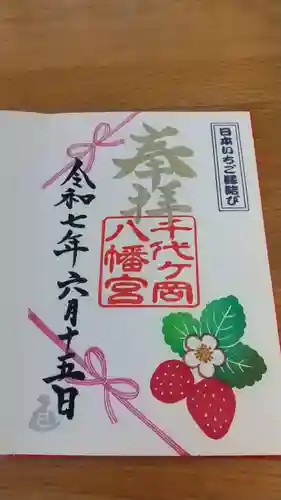 日本いちご縁結び
奉拝
千代ケ岡
八幡宮
令和七年六月十五日